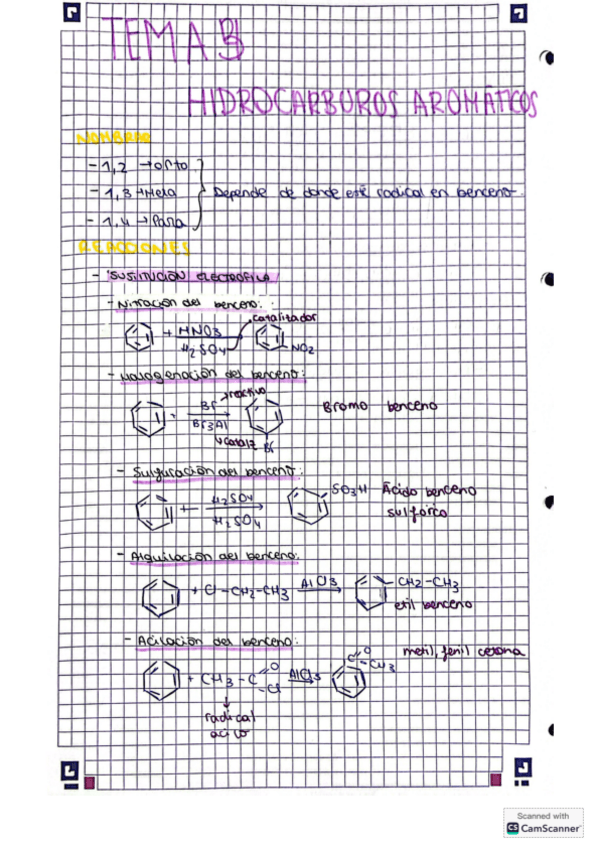 TEMA 3
HIDROCARBUROS AROMÁTICOS
NOMBRAR
- 1,2 → orto
- 1,3 → Meta
- 1,4 → Para
Depende de donde esté radical en benceno.
REACCIONES
- SUSTITUCIÓN ELECTROFILA
- Nitración del benceno:
+ HNO3
H2SO4
catalizador
NO2
- Halogenación del benceno:
+ Br
reactivo
Br3Al
cataliz
Br
Bromo benceno
- Sulfuración del benceno:
+ H2SO4
H2SO4
SO3H
Ácido benceno
sulfórico
- Alquilación del benceno:
+ Cl-CH2-CH3
AlCl3
CH2-CH3
etil benceno
- Acilación del benceno:
+ CH3-C
O
Cl
AlCl3
C
O
CH3
metil, fenil cetona
radical
acilo
Scanned with
CS CamScanner